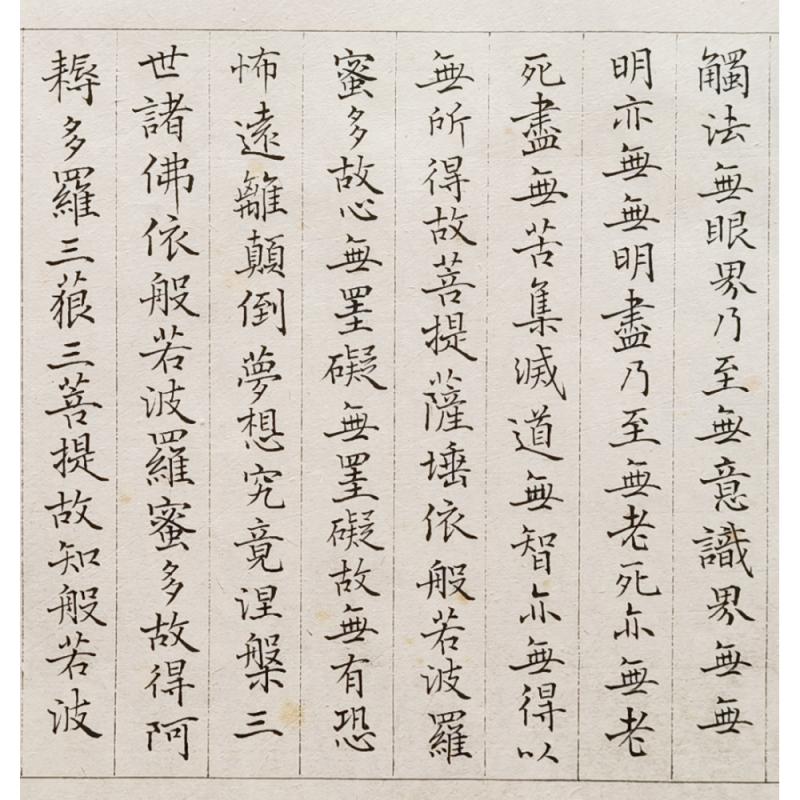 觸法無眼界乃至無意識界無無
明亦無無明盡乃至無老死亦無老
死盡無苦集滅道無智亦無得以
無所得故菩提薩埵依般若波羅
蜜多故心無罣礙無罣礙故無有恐
怖遠離顛倒夢想究竟涅槃三
世諸佛依般若波羅蜜多故得阿
耨多羅三藐三菩提故知般若波